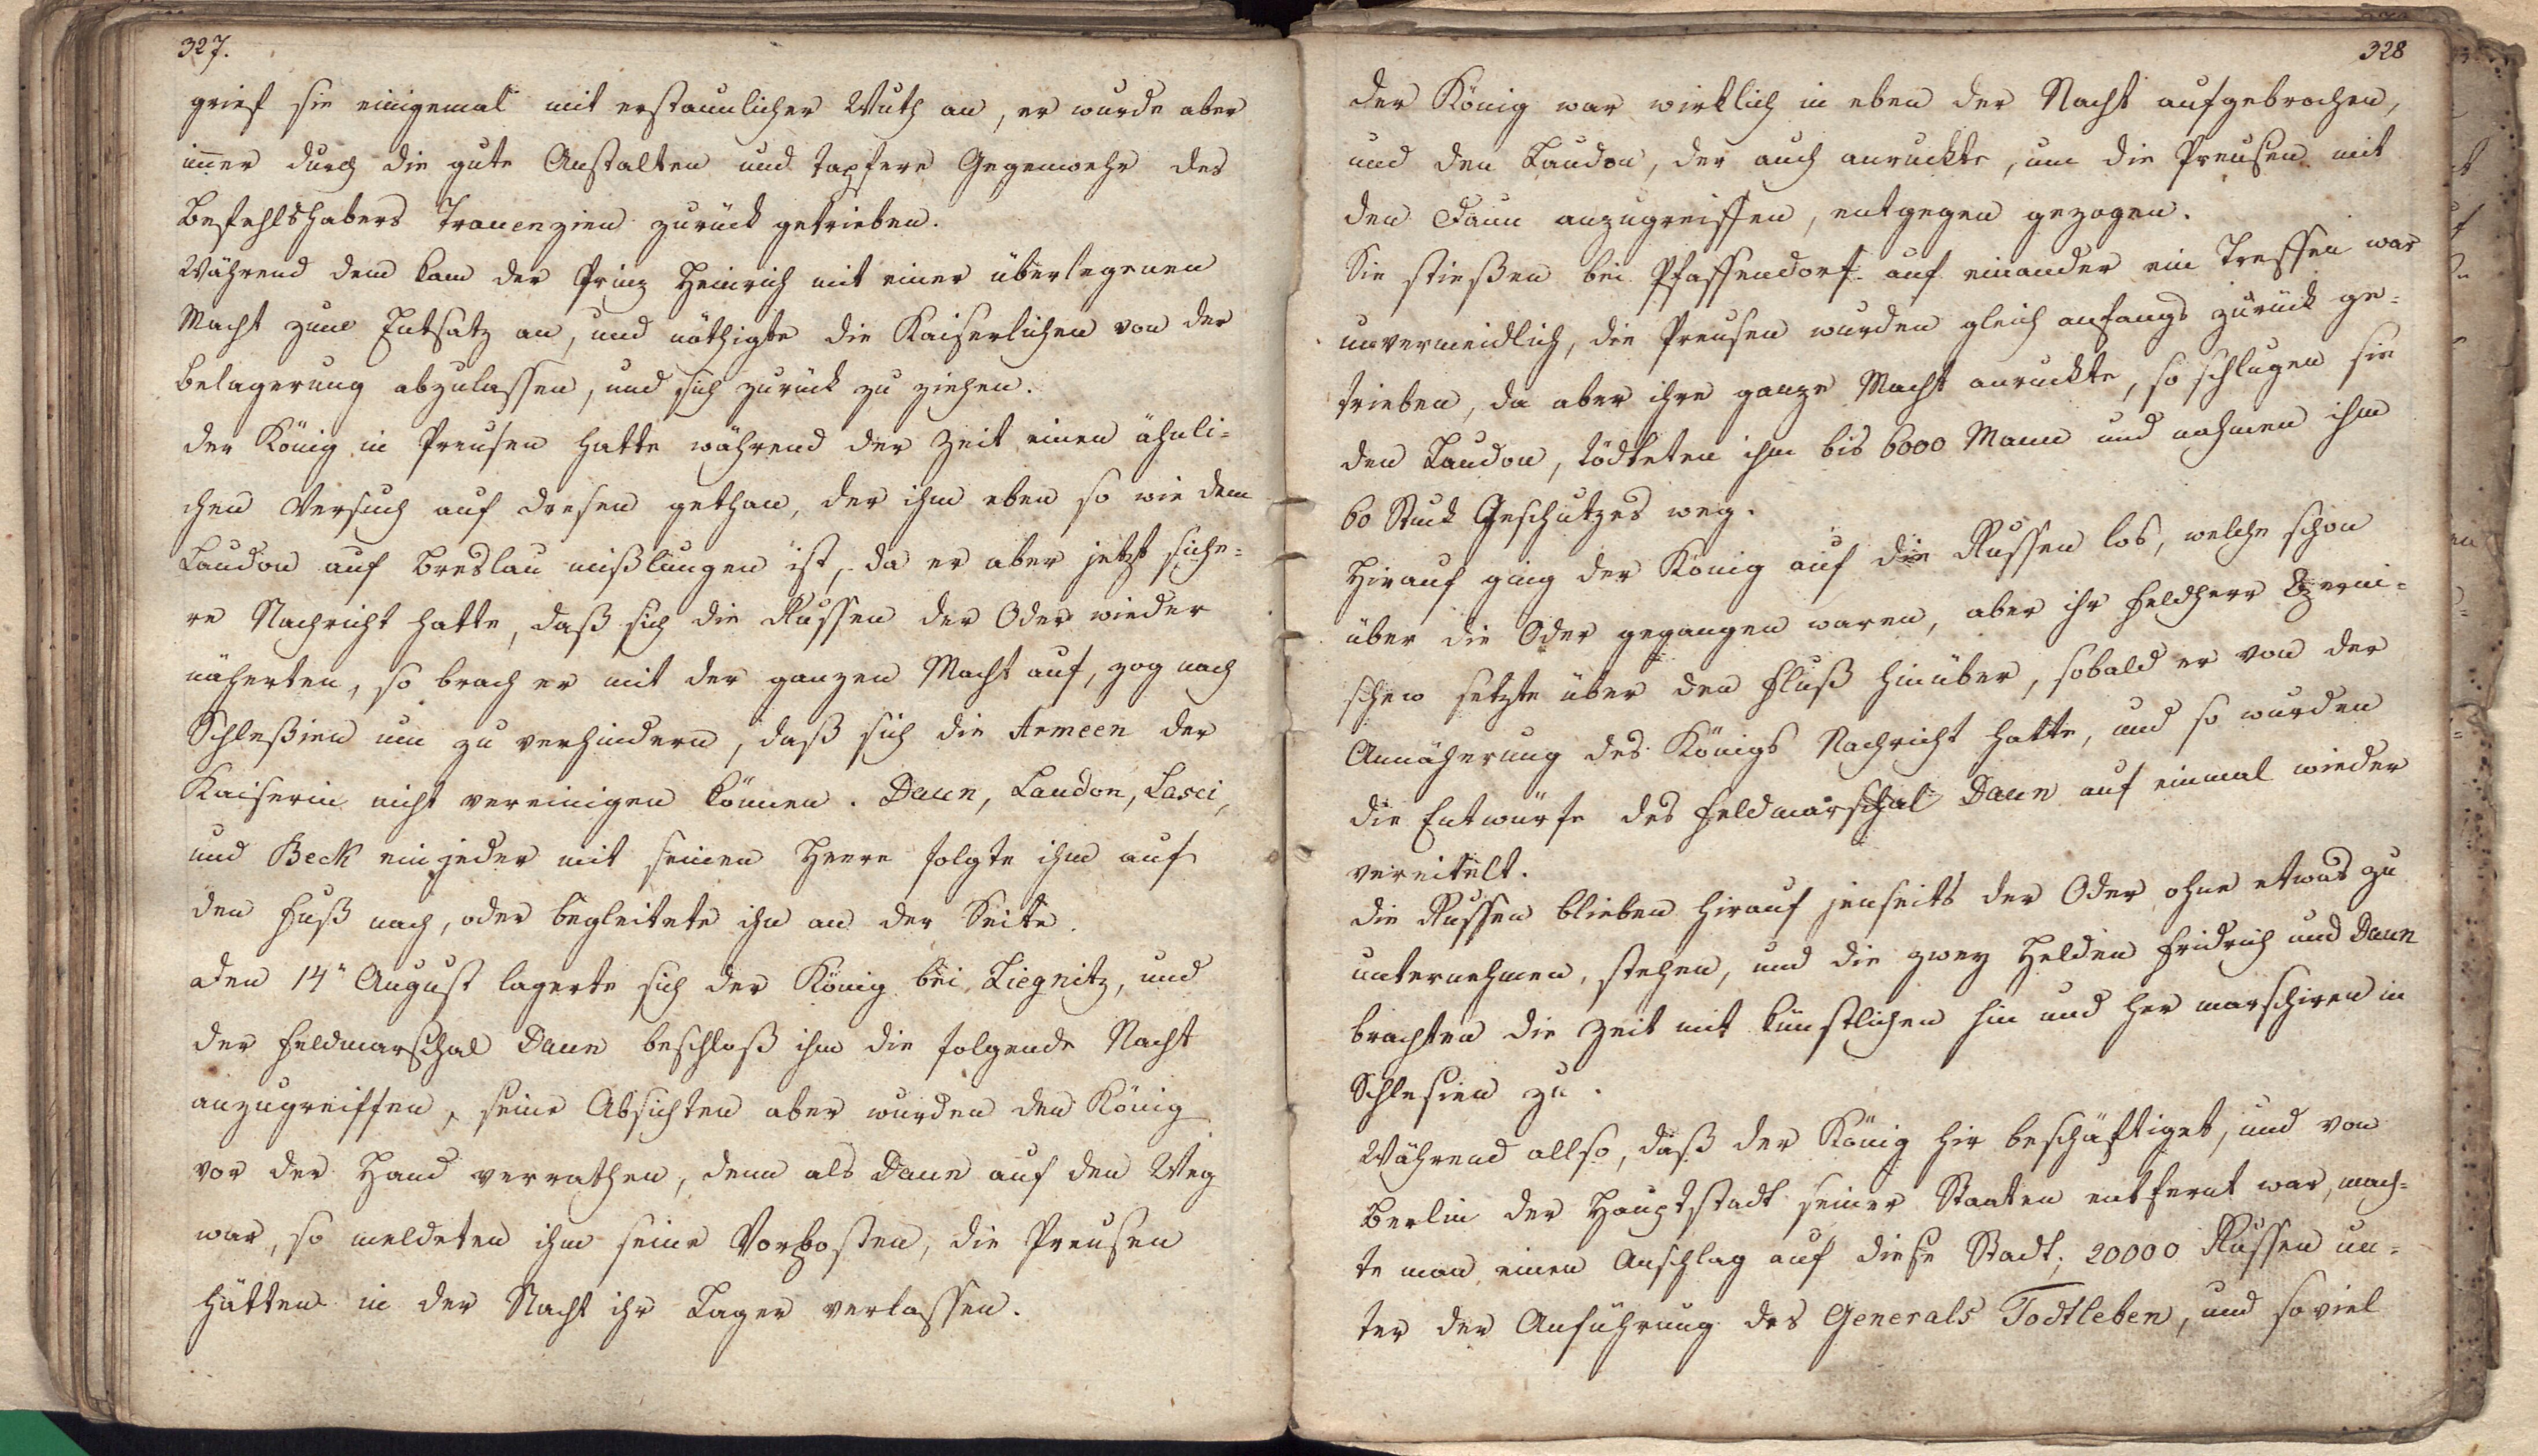 327.
grief sie einigemal mit erstaunlicher Wuth an, er wurde aber
im̅er durch die gute Anstalten und tapfere Gegenwehr des
Befehlshabers Trauenzien zurück getrieben.
Während dem kam der Prinz Heinrich mit einer überlegenen
Macht zum Entsatz an, und nöthigte die Kaiserlichen von der
Belagerung abzulassen, und sich zurück zu ziehen.
der König in Preusen hatte während der Zeit einen ähnli-
chen Versuch auf dresen gethan, der ihm eben so wie dem
Laudon auf Breslau mißlungen ist, da er aber jetzt siche-
re Nachricht hatte, daß sich die Russen der Oder wieder
näherten, so brach er mit der ganzen Macht auf, zog nach
Schleßien um zu verhindern, daß sich die Armeen der
Kaiserin nicht vereinigen können. Daun, Laudon, Lasci,
und Beck ein jeder mit seinen Heere folgte ihm auf
den Fuß nach, oder begleitete ihn an der Seite.
den 14" August lagerte sich der König bei Liegnitz, und
der Feldmarschal Daun beschloß ihm die folgende Nacht
anzugreiffen, seine Absichten aber wurden den König
vor der Hand verrathen, denn als Daun auf den Weg
war, so meldeten ihm seine Vorposten, die Preusen
hätten in der Nacht ihr Lager verlassen.
328
der König war wirklich in eben der Nacht aufgebrochen,
und den Laudon, der auch anruckte, um die Preusen mit
den Daun anzugreiffen, entgegen gezogen.
Sie stießen bei Pfaffendorf auf einander ein Treffen war
unvermeidlich, die Preusen wurden gleich anfangs zurück ge-
trieben, da aber ihre ganze Macht anruckte, so schlugen sie
den Laudon, tödteten ihm bis 6000 Mann und nahmen ihm
60 Stuck Geschutzes weg.
Hirauf ging der König auf die Russen los, welche schon
über die Oder gegangen waren, aber ihr Feldherr Czerni-
schew setzte über den Fluß hinüber, sobald er von der
Annäherung des Königs Nachricht hatte, und so wurden
die Entwürfe des Feldmarschal Daun auf einmal wieder
vereitelt.
die Russen blieben hirauf jenseits der Oder ohne etwas zu
unternehmen, stehen, und die zwey Helden Fridrich und Daun
brachten die Zeit mit künstlichen hin und her marschiren in
Schlesien zu.
Während allso, daß der König hir beschäftiget, und von
Berlin der Hauptstadt seiner Staaten entfernt war, mach-
te man einen Anschlag auf diese Stadt; 20000 Russen un-
ter der Anführung des Generals Todtleben, und so viel